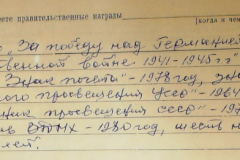 еете правительственные награды [когда и чем
„За победу над Германией
венной войне 1941-1945 г.г."
„Знак почета" - 1978 год, зна
ного просвещения УССР" - 1964
нак просвещения СССР" - 197
ль ВДНХ - 1980 год, шесть м
лей.